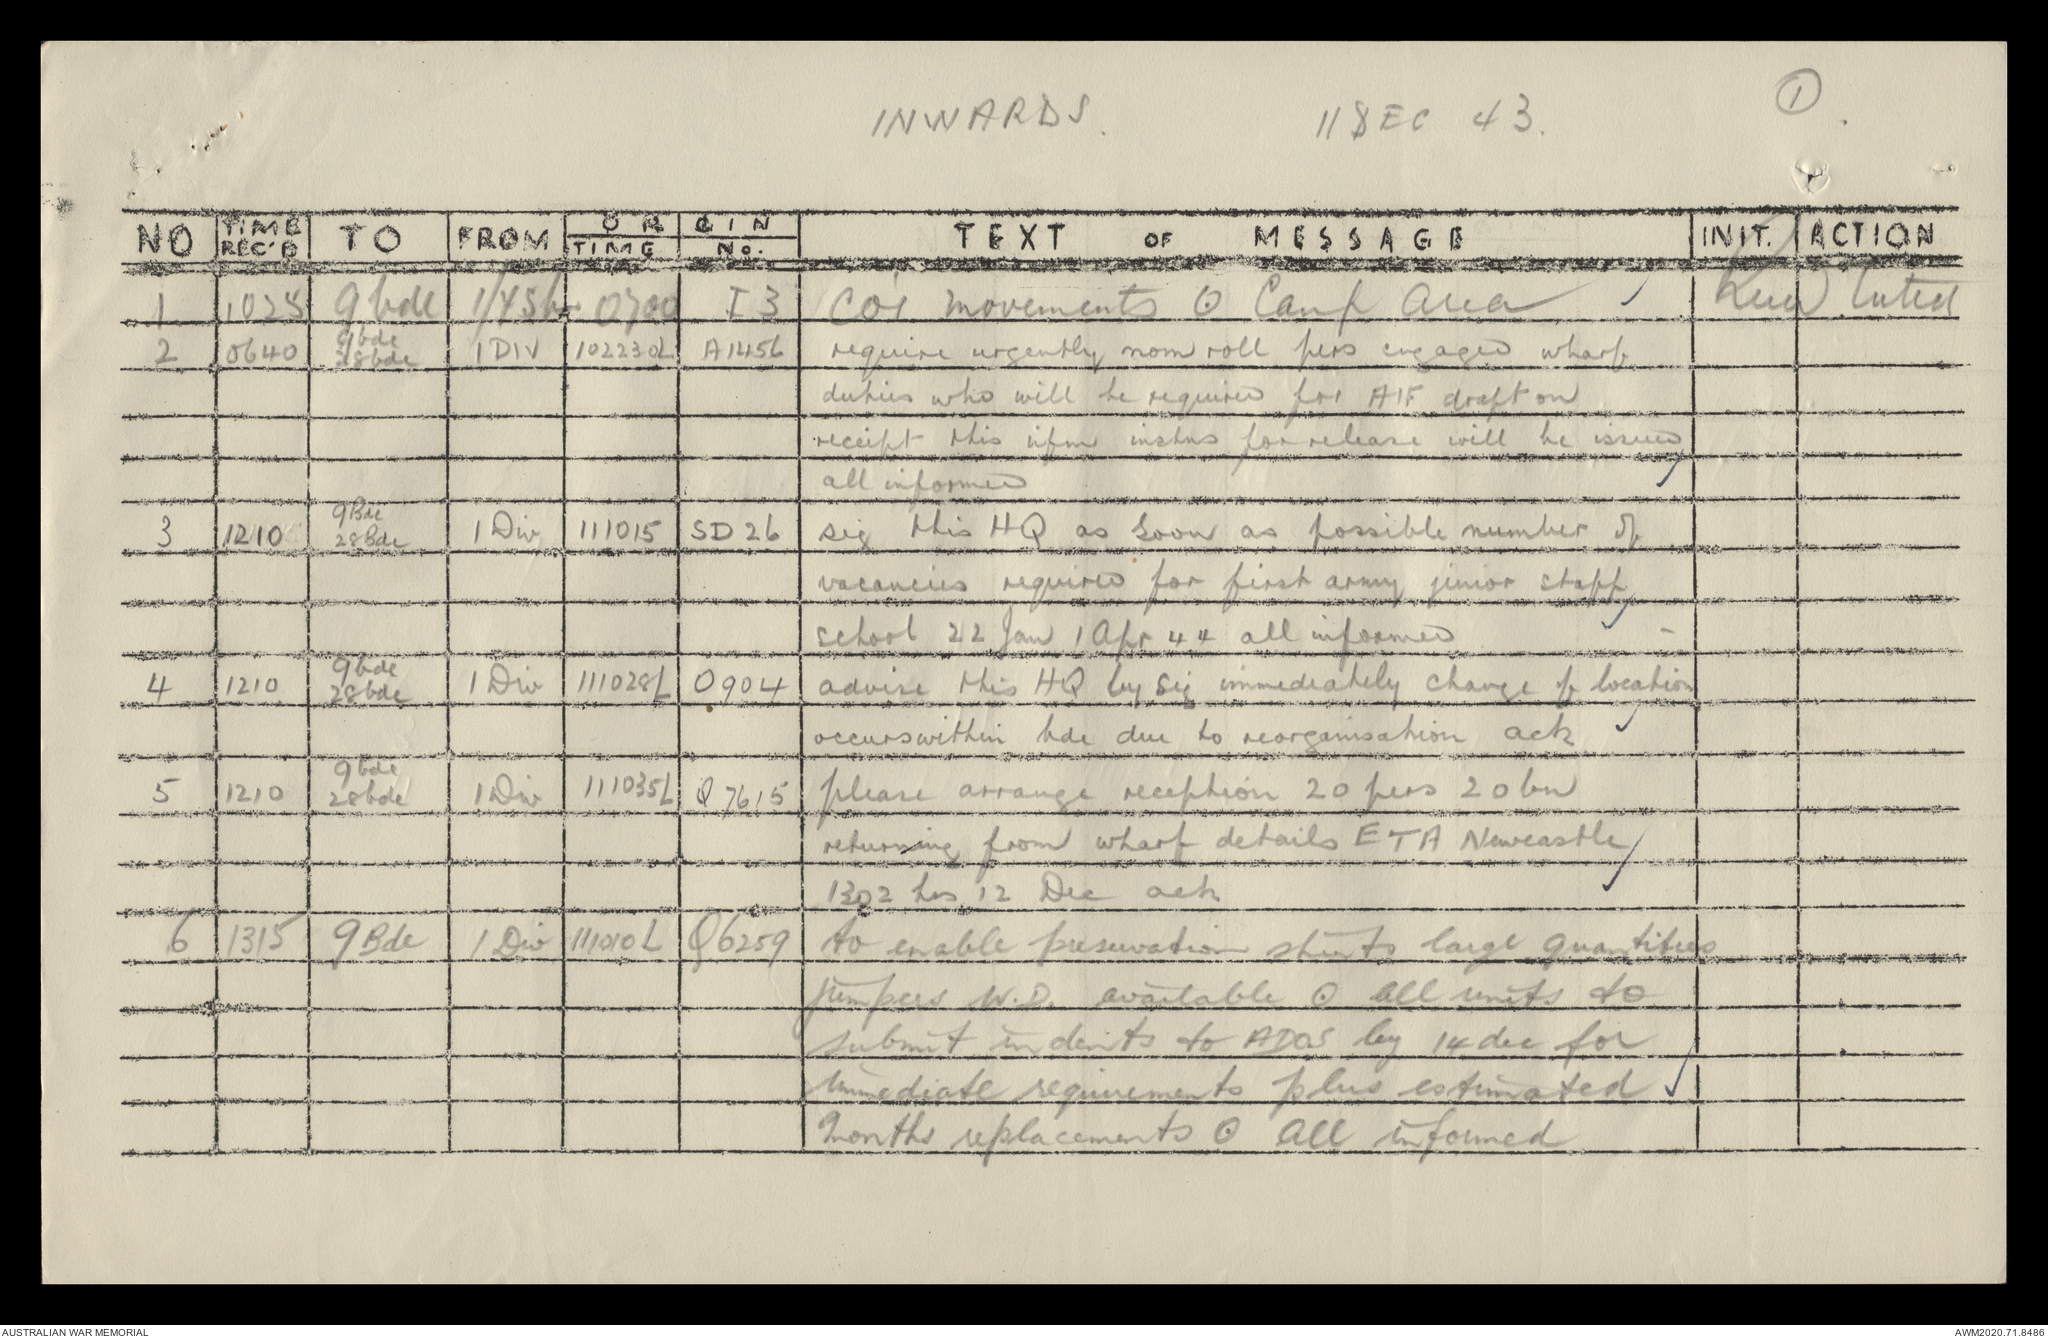 INWARDS. 11 DEC 43. 1.
NO TIME REC'D TO FROM ORIGIN TIME No. TEXT OF MESSAGE INIT. ACTION
1 1025 9 bde 1/45 bn 0700 I 3 COY movements ⊙ Camp Area
2 0640 9bde 28bde 1 DIV 102230L A1456 require urgently nom roll pers engaged wharf
duties who will be required for AIF draft on
receipt this infm instns for release will be issued
all informed
3 1210 9Bde 28Bde 1 Div 111015 SD 26 sig this HQ as soon as possible number of
vacancies required for first army junior staff
school 22 Jan 1 Apr 44 all informed
4 1210 9bde 28bde 1 Div 111028L O904 advise this HQ by sig immediately change of location
occurs within bde due to reorganisation ack
5 1210 9bde 28bde 1 Div 111035L Q7615 please arrange reception 20 pers 20 bn
returning from wharf details ETA Newcastle
1302 hrs 12 Dec ack
6 1315 9 Bde 1 Div 111010L Q6259 to enable preservation shirts large quantities
jumpers W.D. available ⊙ all units to
submit indents to ADOS by 14 dec for
immediate requirements plus estimated
months replacements ⊙ All informed
AUSTRALIAN WAR MEMORIAL AWM2020.71.8486